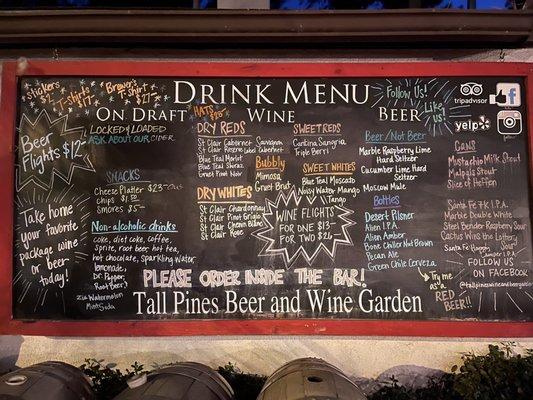 Stickers
$2
T-shirts
$17
Brewer's
T-shirt
$27
DRINK MENU
Follow Us!
Like us!
tripadvisor
f
yelp
ON DRAFT
LOCKED & LOADED
ASK ABOUT OUR CIDER
Beer
Flights $12
SNACKS
Cheese Platter $23
Chips $1.50
Smores $5
Take home
your favorite
package wine
or beer
today!
Non-alcoholic drinks
coke, diet coke, coffee,
sprite, root beer, hot tea,
hot chocolate, sparkling Water,
lemonade,
Dr. Pepper,
Root beer
Zia Watermelon
Mint Soda
HATS
WINE
DRY REDS
St Clair Cabernet Sauvignon
St Clair Rosenè Label Cabernet
Blue Teal Merlot
Blue Teal Shiraz
Gruet Pinot Noir
Bubbly
Mimosa
Gruet Brut
DRY WHITES
St Clair Chardonnay
St Clair Pinot Grigio
St Clair Chenin Blanc
St Clair Rose
SWEET REDS
Cantina Sangria
Triple Berry
SWEET WHITES
Blue Teal Moscato
Noisy Water Mango
Tango
WINE FLIGHTS
FOR ONE $13
FOR TWO $24
BEER
Beer/Not Beer
Marble Raspberry Lime
Hard Seltzer
Cucumber Lime Hard
Seltzer
Moscow Mule
Bottles
Desert Pilsner
Alien I.P.A.
Alien Amber
Bone Chiller Nut Brown
Pecan Ale
Green Chile Cerveza
CANS
Mustachio Milk Stout
Malpais Stout
Slice of Heffen
Santa Fe I.P.A.
Marble Double White
Steel Bender Raspberry Sour
Cactus Wins the Lottery
Sour
Santa Fe Happy Camper I.P.A.
FOLLOW US
ON FACEBOOK
Try me
as a
RED
BEER!!
PLEASE ORDER INSIDE THE BAR!
Tall Pines Beer and Wine Garden
FOLLOW US